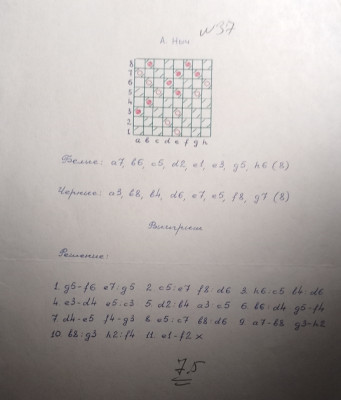 №37
А. Ныч
8
7
6
5
4
3
2
1
a b c d e f g h
Белые: a7, b6, c5, d2, e1, e3, g5, h6 (8)
Чёрные: a3, b8, b4, d6, e7, e5, f8, g7 (8)
Выигрыш
Решение:
1. g5-f6 e7:g5 2. c5:e7 f8:d6 3. h6:c5 b4:d6
4. e3-d4 e5:c3 5. d2:b4 a3:c5 6. b6:d4 g5-f4
7. d4-e5 f4-g3 8. e5:c7 b8:d6 9. a7-b8 g3-h2
10. b8:g3 h2:f4 11. e1-f2 x
7,5